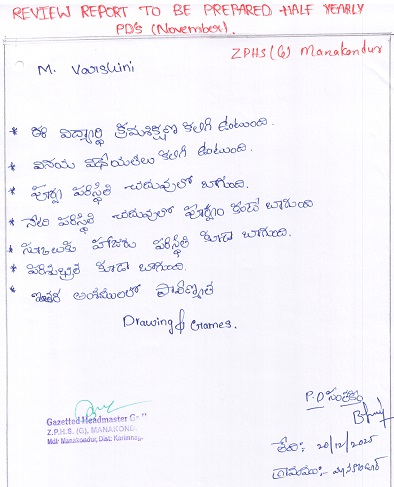 REVIEW REPORT TO BE PREPARED HALF YEARLY
PDS (November).
ZPHS (G) Manakondur
M. Varshini
* ఈ విద్యార్థి క్రమశిక్షణ కలిగి ఉంటుంది.
* వినయ విధేయతలు కలిగి ఉంటుంది.
* పూర్వ పరిస్థితి చదువులో బాగుంది.
* నేటి పరిస్థితి చదువులో పూర్వం కంటే బాగుంది
* స్కూలుకు హాజరు పరిస్థితి కూడా బాగుంది.
* పరిశుభ్రత కూడా బాగుంది.
* ఇతర అంశములలో ప్రావీణ్యత
Drawing & Games.
Gazetted Headmaster
Z.P.H.S. (G), MANAKOND
Mdl: Manakondur, Dist: Karimnag
P.D సంతకం
తేది:- 20/12/2025
గ్రామము:- మానకొండూర్